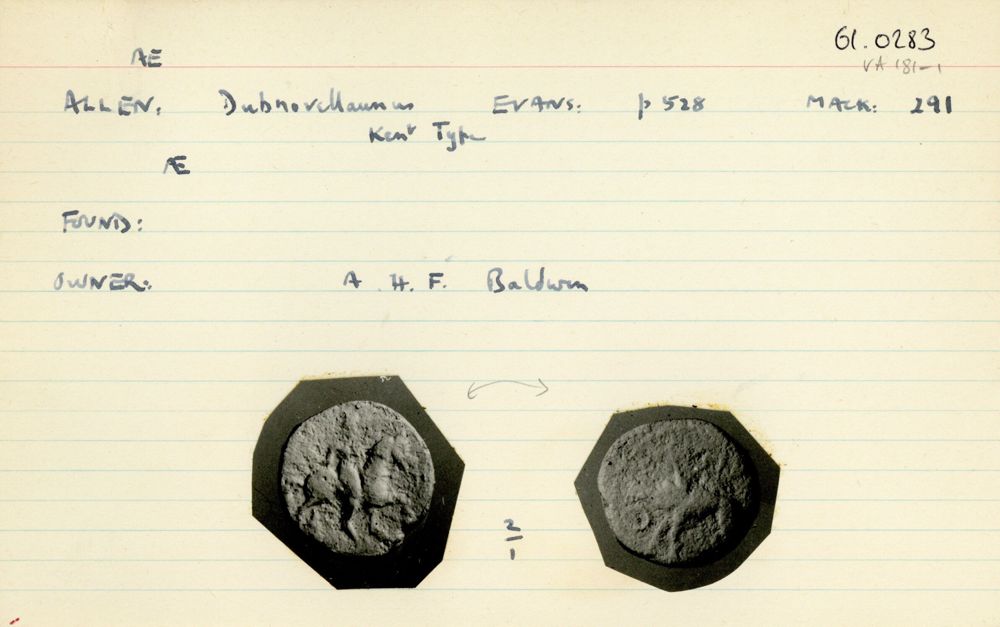 61.0283
VA 181-1
Æ
ALLEN: Dubnovellaunus EVANS: p 528 MACK: 291
Kent Type
Æ
FOUND:
OWNER: A. H. F. Baldwin
2
1